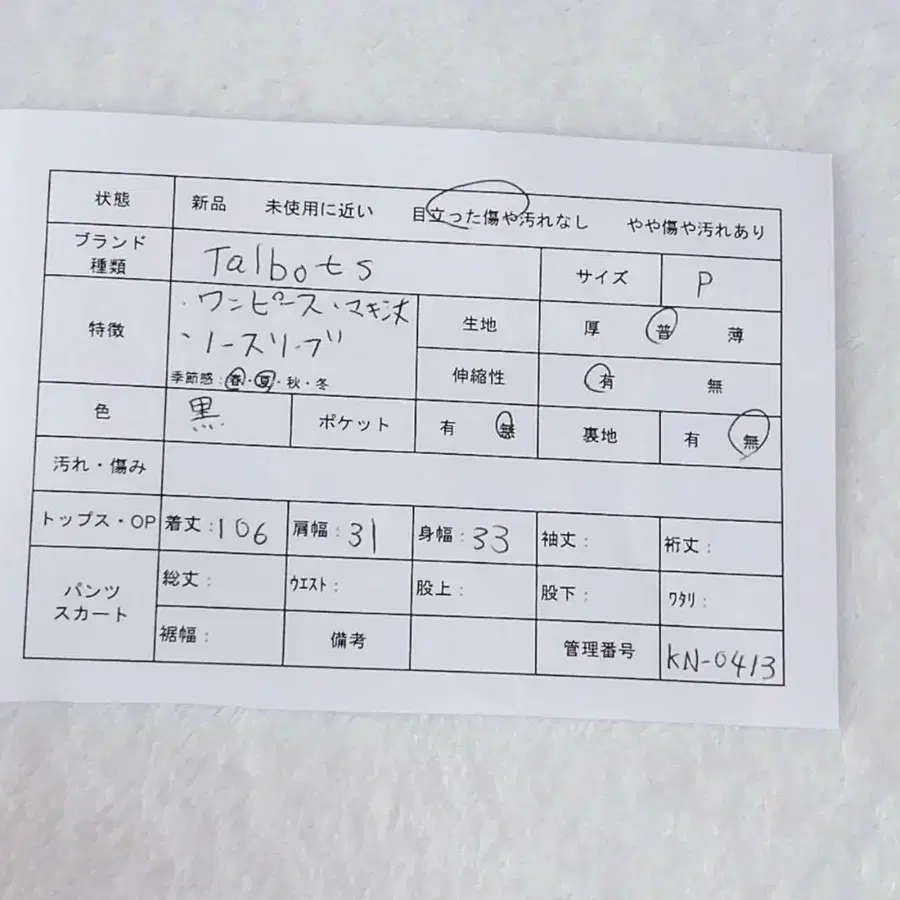 状態 新品 未使用に近い 目立った傷や汚れなし やや傷や汚れあり
ブランド
種類 Talbots サイズ P
特徴 ・ワンピース・マキシ丈
・ノースリーブ
季節感：春・夏・秋・冬
生地 厚 普 薄
伸縮性 有 無
色 黒 ポケット 有 無 裏地 有 無
汚れ・傷み
トップス・OP 着丈：106 肩幅：31 身幅：33 袖丈： 裄丈：
パンツ
スカート
総丈： ｳｴｽﾄ： 股上： 股下： ﾜﾀﾘ：
裾幅： 備考 管理番号 KN-0413